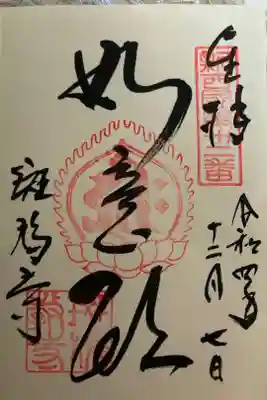 奉拝
令和四年
十二月七日
如意輪
斑鳩寺